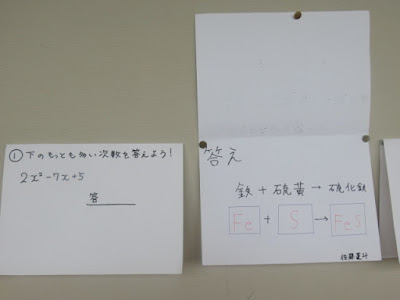 ① 下のもっとも多い次数を答えよう!
2x²-7x+5
答
答え
鉄 + 硫黄 → 硫化鉄
Fe + S → FeS